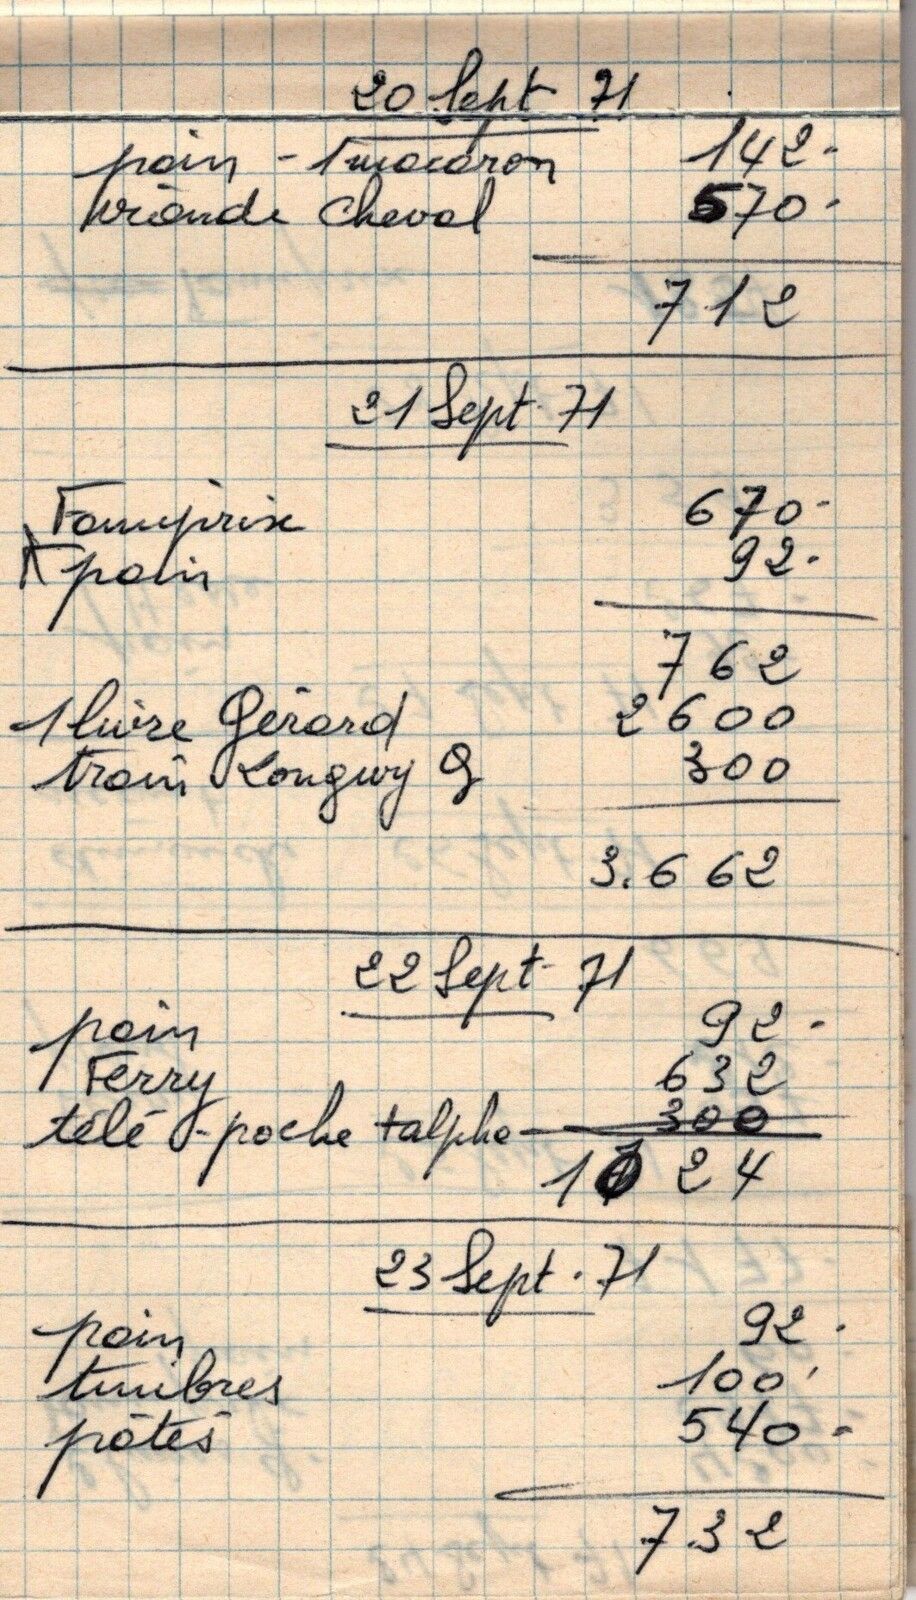 20 Sept 71
pain - 1 macaron 142.-
viande cheval 570.-
712
21 Sept. 71
Famiprix 670-
pain 92.-
762
1 livre Gérard 2600
train Longwy G 300
3.662
22 Sept. 71
pain 92.-
Ferry 632
télé-poche + alpha 300
1024
23 Sept. 71
pain 92.
timbres 100'
pâtés 540-
732